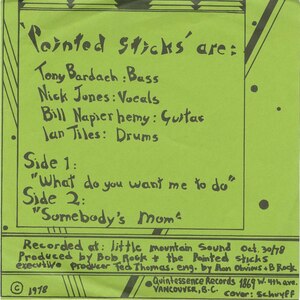 'Pointed Sticks' are:
Tony Bardach: Bass
Nick Jones: Vocals
Bill Napier hemy: Guitar
Ian Tiles: Drums
Side 1:
"What do you want me to do"
Side 2:
"Somebody's Mom"
Recorded at: little mountain Sound Oct. 30/78
Produced by Bob Rock + the Pointed Sticks
executive producer Ted Thomas. eng. by Ron Obvious + B Rock
© 1978
Quintessence Records 1869 w. 4th ave.
VANCOUVER, B.C. cover: schruff